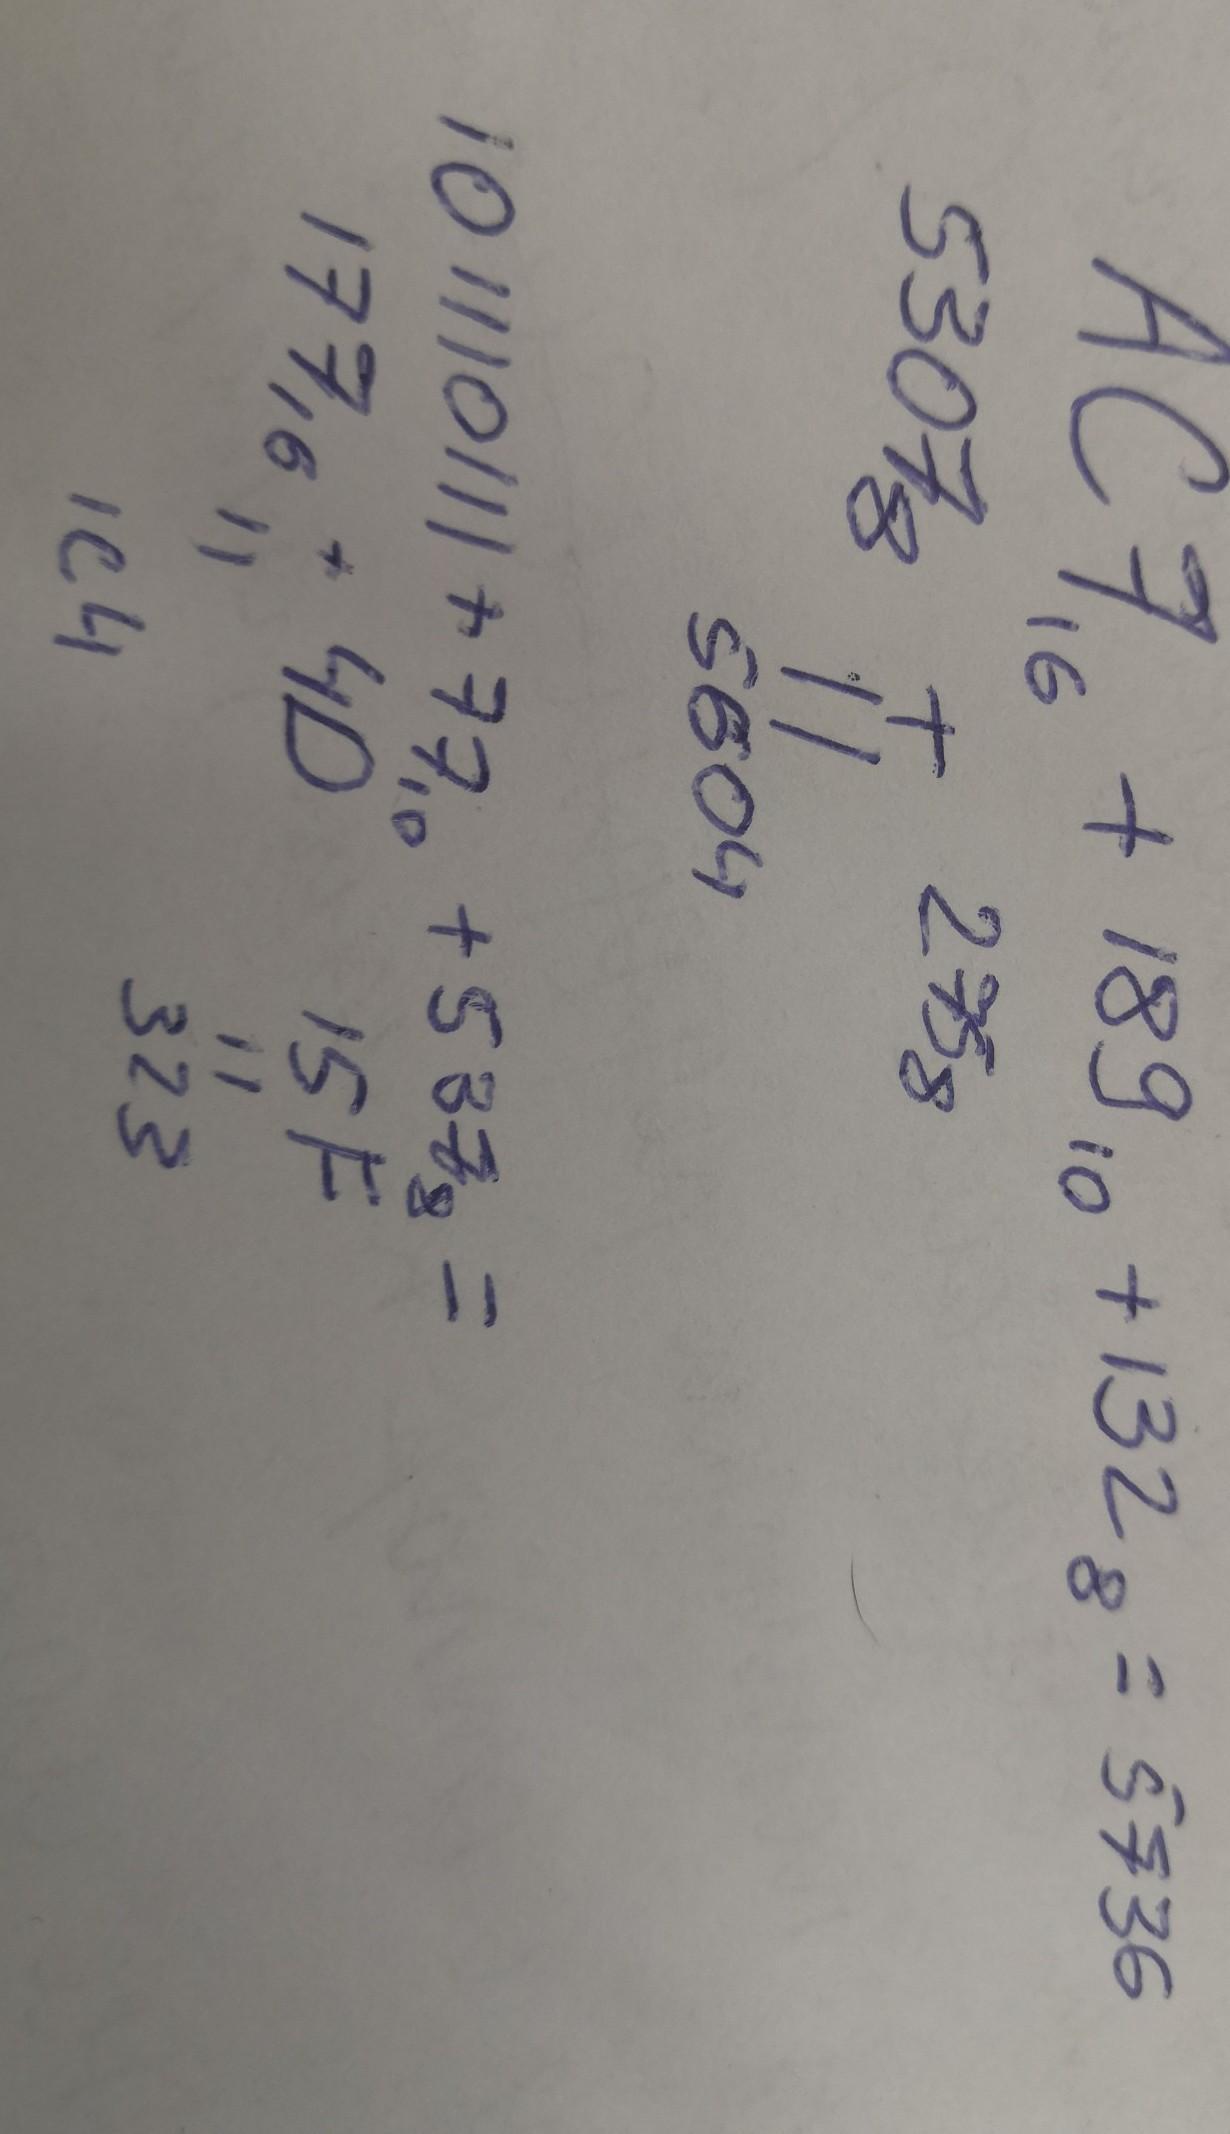 AC7₁₆ + 189₁₀ + 132₈ = 5736
5307₈ + 275₈
||
5604
101110111 + 77₁₀ + 537₈ =
177₁₆ + 4D 15F
|| ||
1C4 323